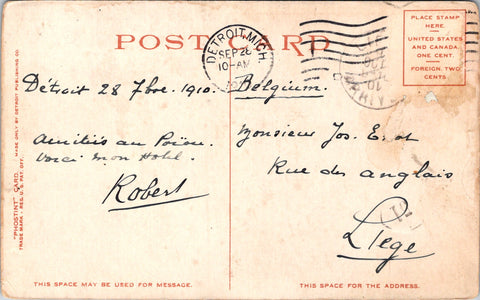 POST CARD
PLACE STAMP
HERE.
UNITED STATES
AND CANADA,
ONE CENT.
FOREIGN, TWO
CENTS.
DETROIT, MICH.
SEP 28
10-AM
Détroit 28 7bre. 1910.
Amitiés au
Voici mon Hotel.
Robert
Belgium.
Monsieur Jos. E.
Rue des anglais
Liege
THIS SPACE MAY BE USED FOR MESSAGE.
THIS SPACE FOR ADDRESS ONLY.
"PHOSTINT" CARD. MADE ONLY BY DETROIT PUBLISHING CO.
TRADE MARK REG. U.S. PAT. OFF.